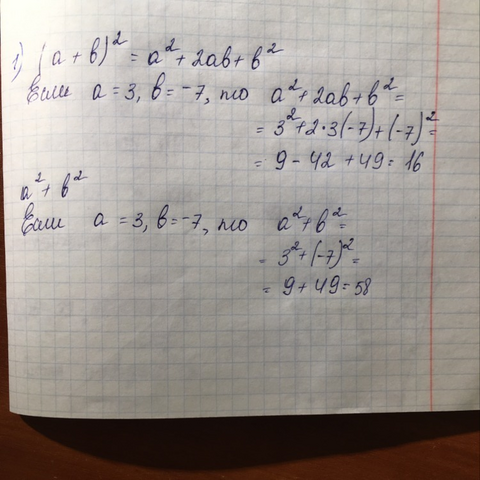 1) (a + b)² = a² + 2ab + b²
Если a = 3, b = -7, то a² + 2ab + b² =
= 3² + 2·3(-7) + (-7)² =
= 9 - 42 + 49 = 16
a² + b²
Если a = 3, b = -7, то a² + b² =
= 3² + (-7)² =
= 9 + 49 = 58